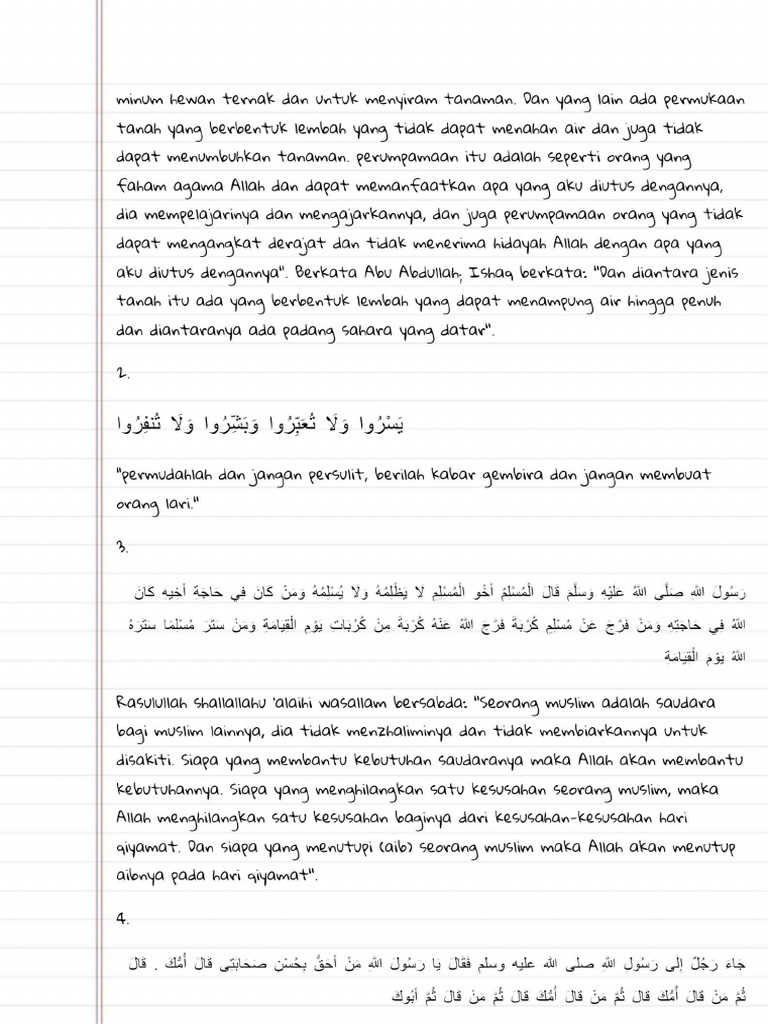 minum hewan ternak dan untuk menyiram tanaman. Dan yang lain ada permukaan
tanah yang berbentuk lembah yang tidak dapat menahan air dan juga tidak
dapat menumbuhkan tanaman. perumpamaan itu adalah seperti orang yang
faham agama Allah dan dapat memanfaatkan apa yang aku diutus dengannya,
dia mempelajarinya dan mengajarkannya, dan juga perumpamaan orang yang tidak
dapat mengangkat derajat dan tidak menerima hidayah Allah dengan apa yang
aku diutus dengannya". Berkata Abu Abdullah; Ishaq berkata: "Dan diantara jenis
tanah itu ada yang berbentuk lembah yang dapat menampung air hingga penuh
dan diantaranya ada padang sahara yang datar".
2.
يَسْرُوا وَلَا تُعَبِّرُوا وَبَشِّرُوا وَلَا تُنفِرُوا
"permudahlah dan jangan persulit, berilah kabar gembira dan jangan membuat
orang lari."
3.
رَسُولَ اللهِ صَلَّى اللهُ عَلَيْهِ وَسَلَّمَ قَالَ الْمُسْلِمُ أَخُو الْمُسْلِمِ لَا يَظْلِمُهُ وَلَا يُسْلِمُهُ وَمَنْ كَانَ فِي حَاجَةِ أَخِيهِ كَانَ
اللهُ فِي حَاجَتِهِ وَمَنْ فَرَّجَ عَنْ مُسْلِمٍ كُرْبَةً فَرَّجَ اللهُ عَنْهُ كُرْبَةً مِنْ كُرُبَاتِ يَوْمِ الْقِيَامَةِ وَمَنْ سَتَرَ مُسْلِمًا سَتَرَهُ
اللهُ يَوْمَ الْقِيَامَة
Rasulullah shallallahu 'alaihi wasallam bersabda: "Seorang muslim adalah saudara
bagi muslim lainnya, dia tidak menzhaliminya dan tidak membiarkannya untuk
disakiti. Siapa yang membantu kebutuhan saudaranya maka Allah akan membantu
kebutuhannya. Siapa yang menghilangkan satu kesusahan seorang muslim, maka
Allah menghilangkan satu kesusahan baginya dari kesusahan-kesusahan hari
qiyamat. Dan siapa yang menutupi (aib) seorang muslim maka Allah akan menutup
aibnya pada hari qiyamat".
4.
جَاءَ رَجُلٌ إِلَى رَسُولِ اللهِ صلى الله عليه وسلم فَقَالَ يَا رَسُولَ اللهِ مَنْ أَحَقُّ بِحُسْنِ صَحَابَتِى قَالَ أُمُّكَ . قَالَ
ثُمَّ مَنْ قَالَ أُمُّكَ قَالَ ثُمَّ مَنْ قَالَ أُمُّكَ قَالَ ثُمَّ مَنْ قَالَ ثُمَّ أَبُوكَ